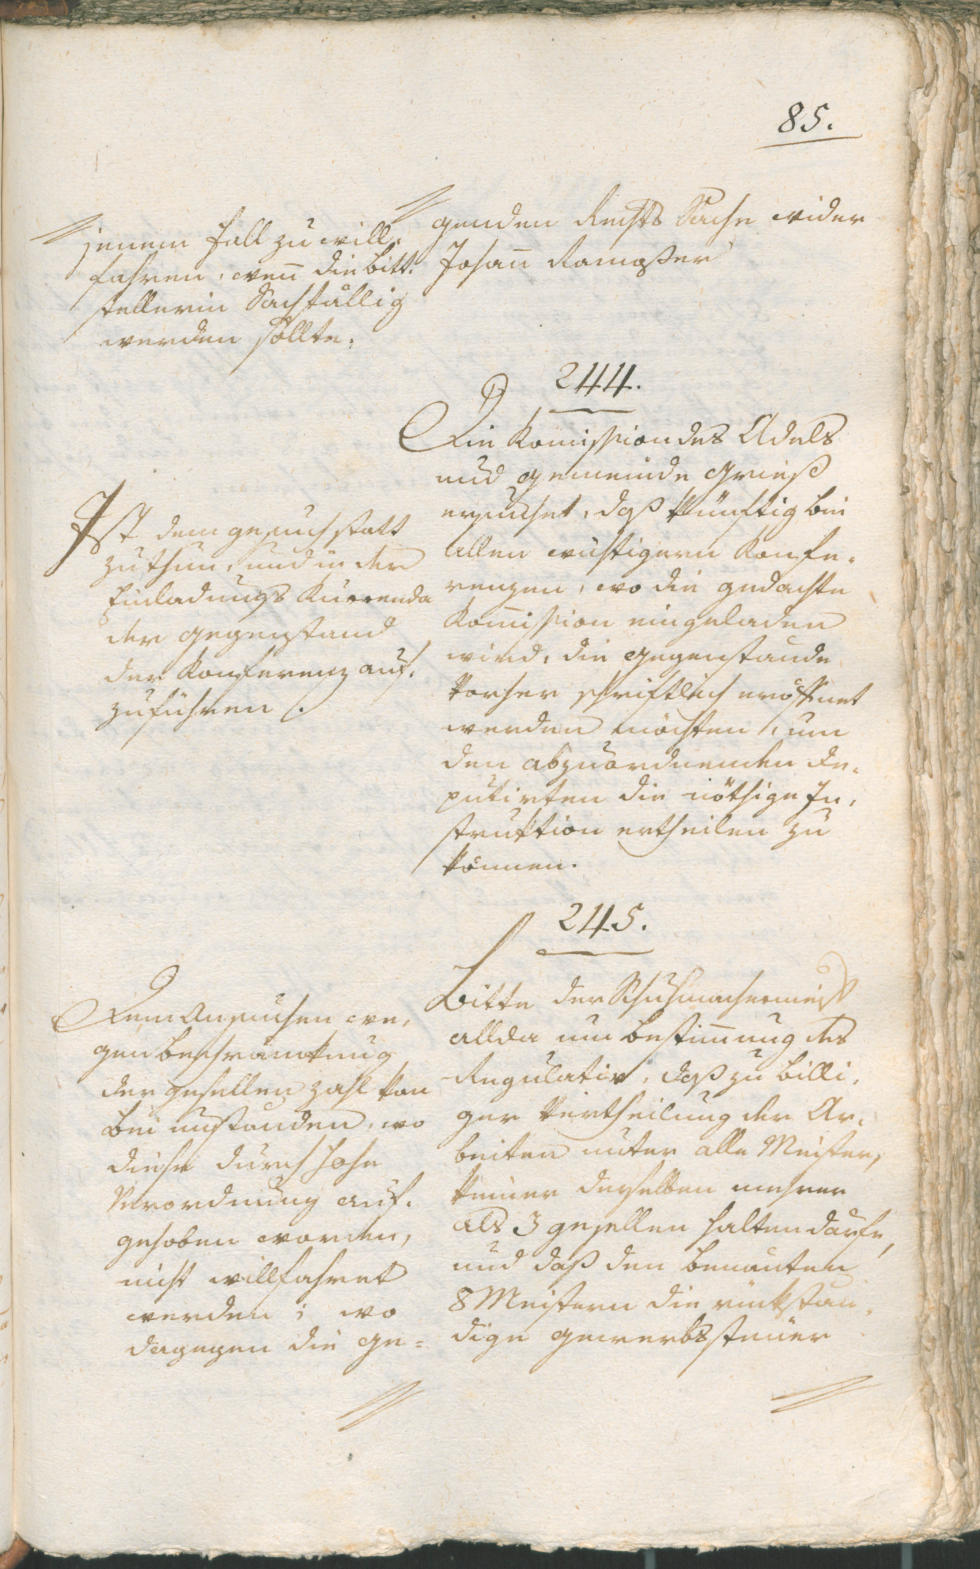 85.
jenem Fall zu will-
fahren, wen̄ die Bitt-
stellerin Sachfällig
werden sollte.
genden Rechts Sache wider
Johan̄ Ramoßer
244.
Die Kom̄ission des Adels
und Gemeinde Grieß
ersuchet, daß künftig bei
allen wichtigern Konfe-
renzen, wo die gedachte
Kom̄ission eingeladen
wird, die Gegenstände
vorher schriftlich eröffnet
werden möchten, um
den abzuordnenden De-
putirten die nöthige In-
struktion ertheilen zu
können.
Ist dem Gesuch statt
zu thun, und in der
Einladungs Kurrenda
der Gegenstand
der Konferenz auf-
zuführen.
245.
Bitte der Schuhmachermeist
allda um Bestim̄ung des
Regulativ, daß zu billi-
ger Vertheilung der Ar-
beiten unter alle Meister,
keiner derselben mehrer
als 3 Gesellen halten dürfe,
und daß den benan̄ten
8 Meistern die rückstän-
dige Gewerbssteuer
Dem Ansuchen we-
gen Beschränkung
der Gesellen Zahl kan
bei Umständen, wo
diese durch hohe
Verordnung auf-
gehoben worden,
nicht willfahret
werden; wo
dagegen die Ge-